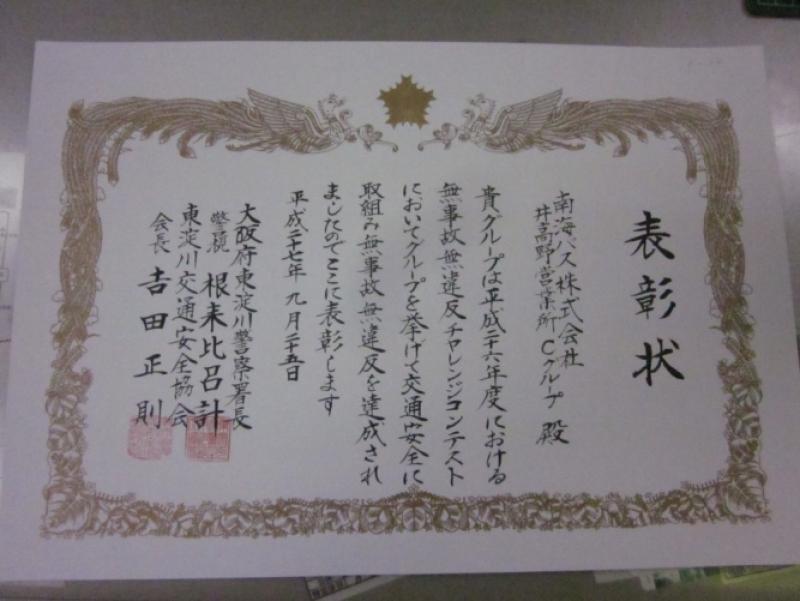 表彰状
南海バス株式会社
井高野営業所Cグループ 殿
貴グループは平成二十六年度における
無事故無違反チャレンジコンテスト
においてグループを挙げて交通安全に
取組み無事故無違反を達成され
ましたのでここに表彰します
平成二十七年九月二十五日
大阪府東淀川警察署長
警視 根来比呂計
東淀川交通安全協会
会長 吉田正則